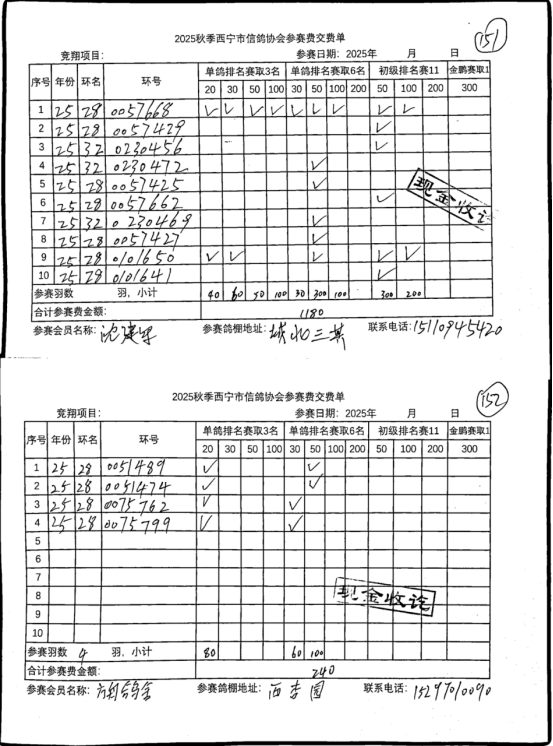 151
2025秋季西宁市信鸽协会参赛费交费单
竞翔项目: 参赛日期: 2025年 月 日
序号 年份 环名 环号 单鸽排名赛取3名 单鸽排名赛取6名 初级排名赛11 金鹏赛取1
20 30 50 100 30 50 100 200 50 100 200 300
1 25 28 0057668 ✓ ✓ ✓ ✓ ✓ ✓ ✓ ✓ ✓
2 25 28 0057429 ✓
3 25 32 0230456 ✓
4 25 32 0230472 ✓
5 25 28 0057425 ✓
6 25 28 0057662 ✓
7 25 32 0230469 ✓
8 25 28 0057427 ✓
9 25 28 0101650 ✓ ✓ ✓ ✓ ✓
10 25 28 0101641 ✓
现金收讫
参赛羽数 羽、小计 40 60 50 100 30 300 100 300 200
合计参赛费金额: 1180
参赛会员名称: 沈建 参赛鸽棚地址: 城北三其 联系电话: 15110945420
152
2025秋季西宁市信鸽协会参赛费交费单
竞翔项目: 参赛日期: 2025年 月 日
序号 年份 环名 环号 单鸽排名赛取3名 单鸽排名赛取6名 初级排名赛11 金鹏赛取1
20 30 50 100 30 50 100 200 50 100 200 300
1 25 28 0051489 ✓ ✓
2 25 28 0051474 ✓ ✓
3 25 28 0075762 ✓ ✓
4 25 28 0075799 ✓ ✓
5
6
7
8
9
10
现金收讫
参赛羽数 4 羽、小计 80 60 100
合计参赛费金额: 240
参赛会员名称: 参赛鸽棚地址: 西杏园 联系电话: 15297010090